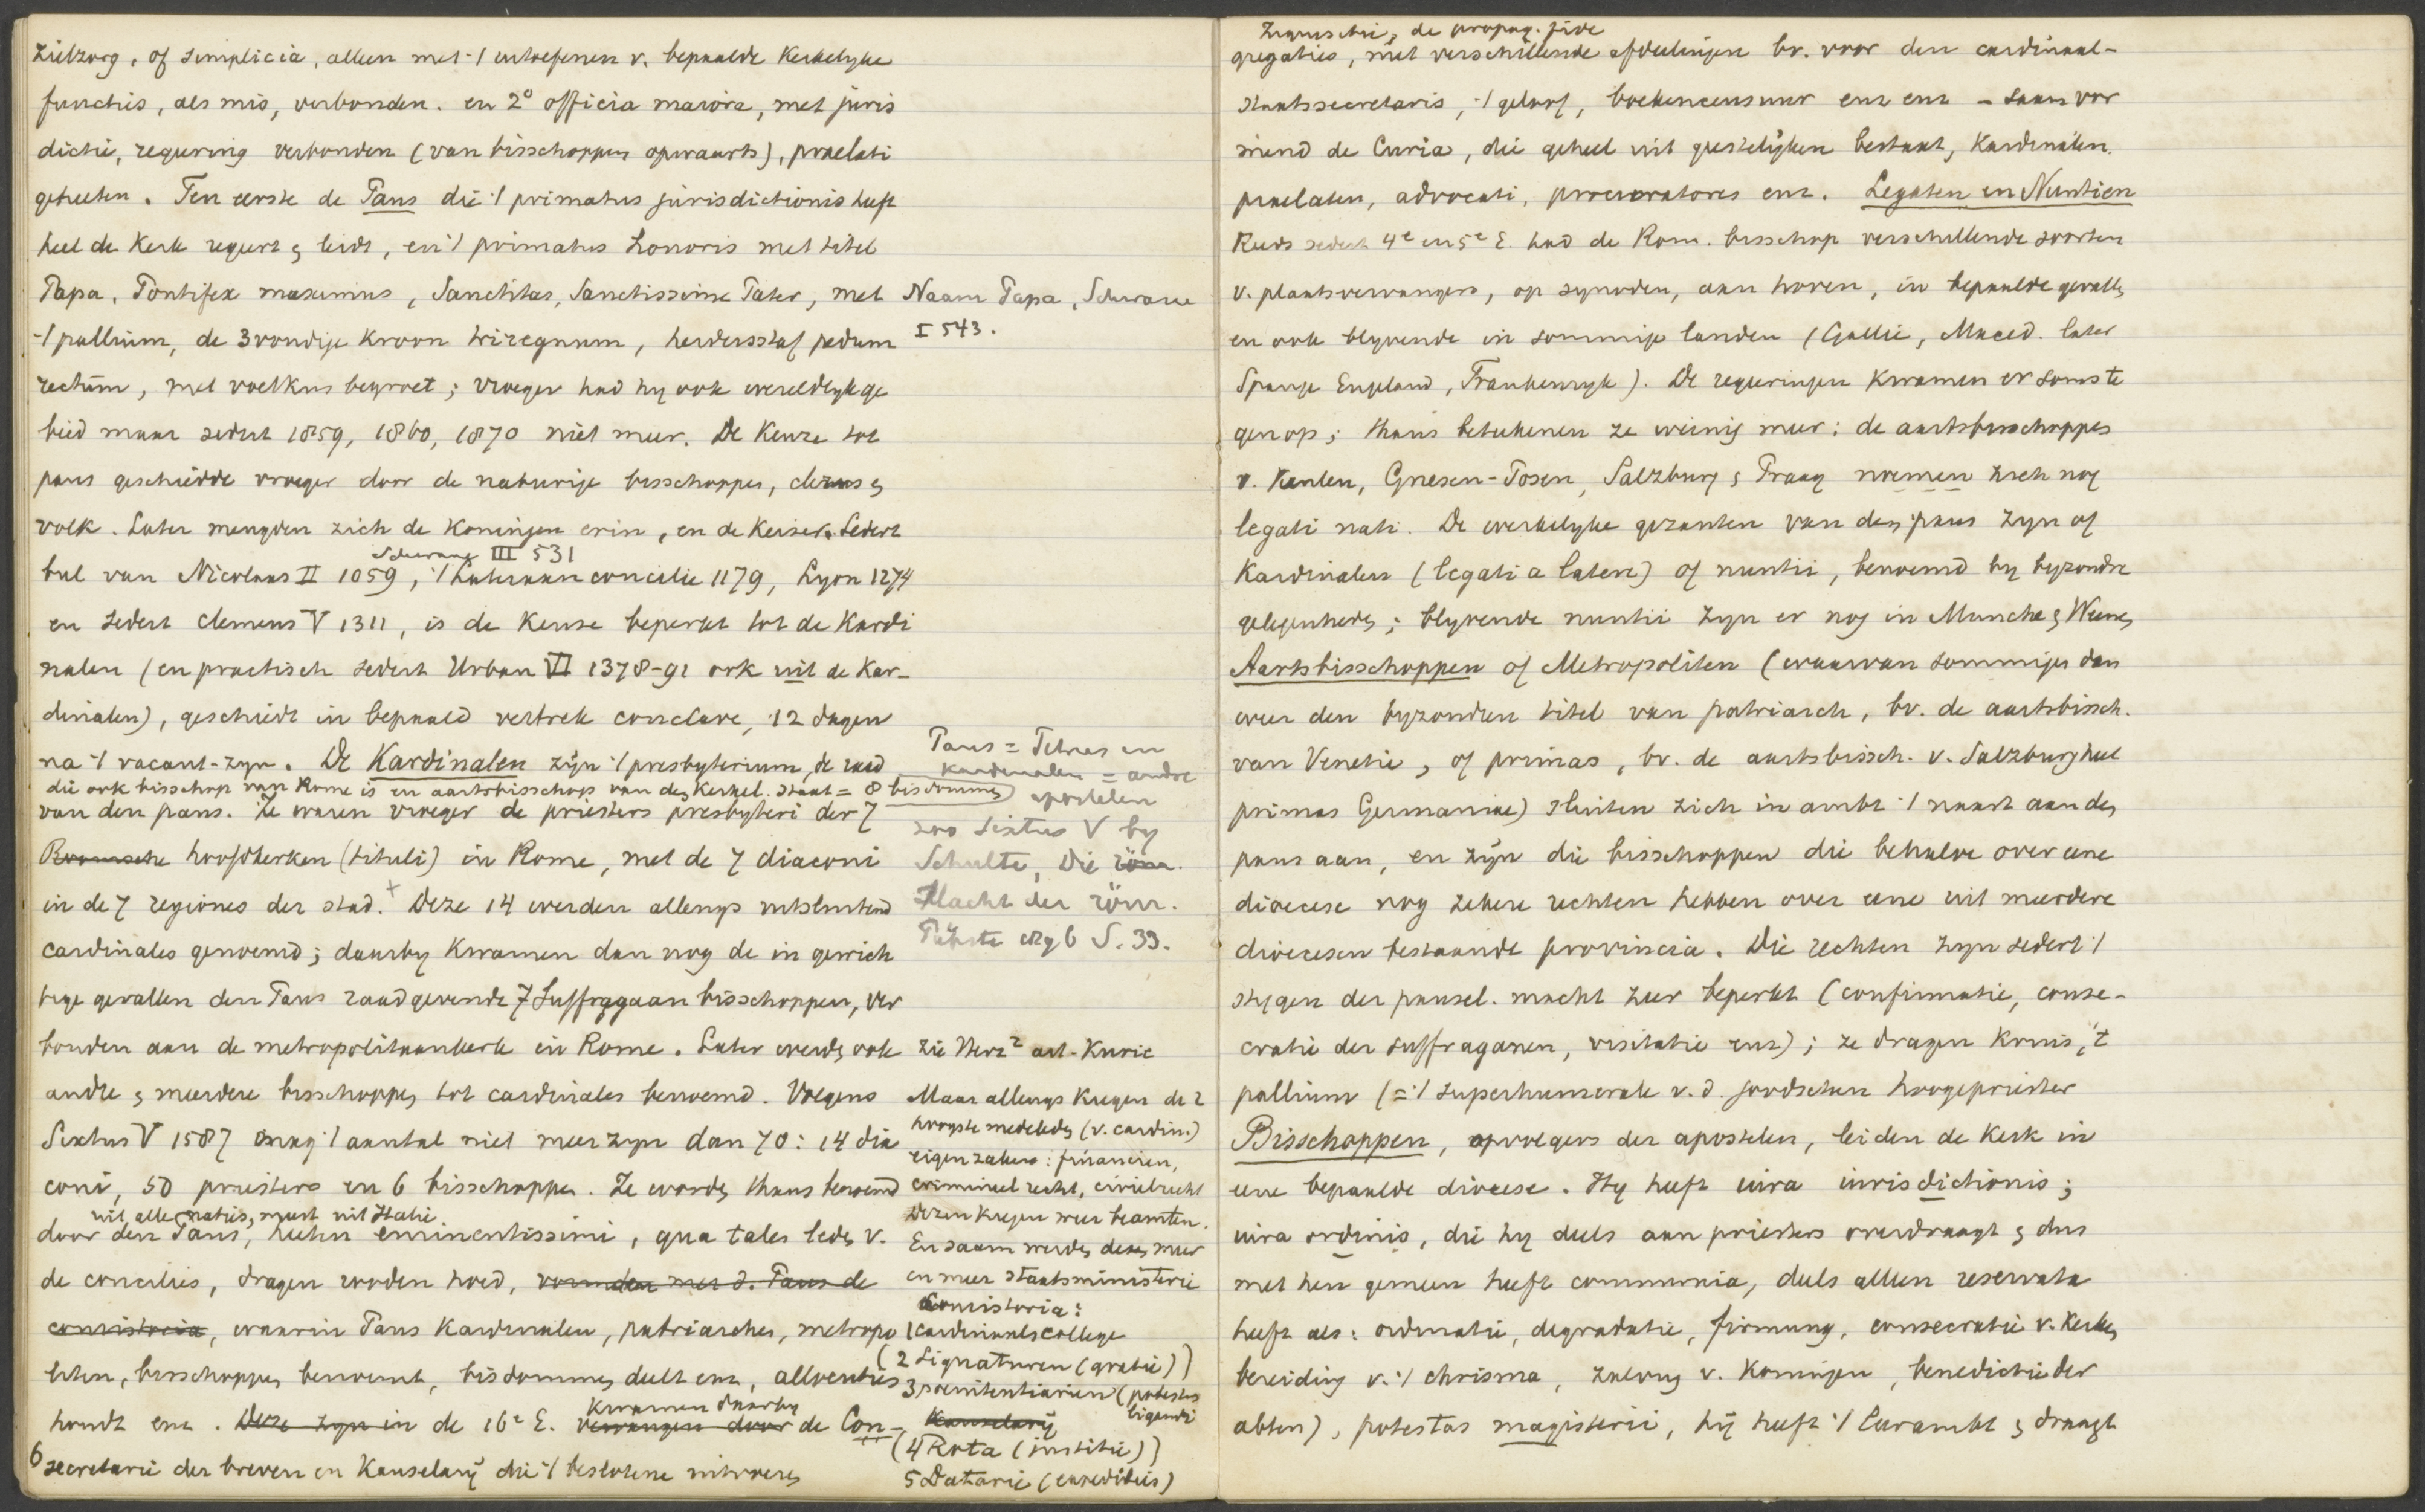 zielzorg, of simplicia, alleen met 't uitoefenen v. bepaalde Kerkelyke
functies, als mis, verbonden. en 2° officia maiora, met juris
dictie, regeering verbonden (van bisschoppen opwaarts), praelati
geheeten. Ten eerste de Paus die 't primatus jurisdictionis heeft
heel de Kerk regeert & leidt, en 't primatus honoris met titel
Papa, Pontifex maximus, Sanctitas, Sanctissime Pater, met
't pallium, de 3voudige Kroon triregnum, herdersstaf pedum
rectum, met voetkus begroet; vroeger had hy ook wereldlyk ge
bied maar sedert 1859, 1860, 1870 niet meer. De Keuze tot
paus geschiedde vroeger door de naburige bisschoppen, clerus &
volk. Later mengden zich de Koningen erin, en de Keizer. Sedert
Schwane III 531
bul van Nicolaus II 1059, 't Lateraanconcilie 1179, Lyon 1274
en sedert Clemens V 1311, is de Keuse beperkt tot de Kardi
nalen (en practisch sedert Urban VI 1378-91 ook uit de Kar-
dinalen), geschiedt in bepaald vertrek conclave, 12 dagen
na 't vacant-zyn. De Kardinalen zyn 't presbyterium, de raad
die ook bisschop van Rome is en aartsbisschop van den Kerkel. Staat = 8 bisdommen
van den paus. Ze waren vroeger de priesters presbyteri der 7
Roomsche hoofdkerken (tituli) in Rome, met de 7 diaconi
in de 7 regiones der stad.+ Deze 14 werden allengs uitsluitend
cardinales genoemd; daarby Kwamen dan nog de in gewich
tige gevallen den Paus raadgevende 7 Suffragaan bisschoppen, ver
bonden aan de metropolitaankerk in Rome. Later werden ook
andre & meerdere bisschoppen tot cardinales benoemd. Volgens
Sixtus V 1587 mag 't aantal niet meer zyn dan 70: 14 dia
coni, 50 priesters en 6 bisschoppen. Ze worden thans benoemd
uit alle naties, meest uit Italie.
door den Paus, heeten eminentissimi, qua tales leden v.
de concilies, dragen rooden hoed, vormden met d. Paus de
consistoria, waarin Paus Kardinalen, patriarchen, metropo
liten, bisschoppen benoemt, bisdommen deelt enz, allocuties
houdt enz. Deze zyn in de 16e E. vervangen door de Con-
Kwamen daarby
6 secretarie der breven en Kanselarij die 't beslotene uitvoeren
Naam Papa, Schwane
I 543.
Paus = Petrus en
Kardinalen = andre
apostelen
zoo Sixtus V by
Schulte, Die röm.
Macht der röm.
Päpste S. 33.
zie Herz² art. Kurie
Maar allengs kregen de
hoogste medeleden (v. cardin.)
eigen zaken: financien,
crimineel recht, civielrecht
Dezen kregen weer beamten.
En saam werden deze meer
en meer staatsministerie
Consistoria:
1 cardinaalscollege
(2 Signaturen (gratie))
3 poenitentiarien (potestas
ligendi
Kanselarij
(4 Rota (institie))
5 Datarie (expedities)
Inquisitie, de propag. fide
gregaties, met verschillende afdeelingen bv. voor den cardinaal-
staatssecretaris, 't geloof, boekencensuur enz enz - saam vor
mend de Curia, die geheel uit geestelijken bestaat, Kardinalen.
praelaten, advocati, procuratores enz. Legaten en Nuntien
Reeds sedert 4e en 5e E. had de Rom. bisschop verschillende soorten
v. plaatsvervangers, op synoden, aan hoven, in bepaalde gevallen
en ook blyvende in sommige landen (Gallie, Maced. later
Spanje Engeland, Frankenryk). De regeeringen Kwamen er soms te
gen op; thans beteekenen ze weinig meer: de aartsbisschoppen
v. Keulen, Gnesen-Posen, Salzburg & Praag noemen zich nog
legati nati. De werkelyke gezanten van den paus zyn of
Kardinalen (legati a latere) of nuntii, benoemd by byzondre
gelegenheden; blyvende nuntii zyn er nog in Munchen & Weenen
Aartsbisschoppen of Metropoliten (waarvan sommigen dan
weer den byzonden titel van patriarch, bv. de aartsbissch.
van Venetie, of primas, bv. de aartsbissch. v. Salzburg heet
primas Germaniae) sluiten zich in ambt 't naast aan den
paus aan, en zyn die bisschoppen die behalve over eene
dioecese nog zekere rechten hebben over eene uit meerdere
dioecesen bestaande provincia. Die rechten zyn sedert 't
stygen der pausel. macht zeer beperkt (confirmatie, conse-
cratie der suffraganen, visitatie enz); ze dragen kruis, 't
pallium (= 't superhumerale v. d. joodschen hoogepriester
Bisschoppen, opvolgers der apostelen, leiden de Kerk in
eene bepaalde diocese. Hy heeft iura iurisdictionis;
iura ordinis, die hy deels aan priesters overdraagt & dus
met hen gemeen heeft communia, deels alleen reservata
heeft als: ordinatie, degradatie, firmung, consecratie v. Kerken
bereiding v. 't chrisma, zalving v. Koningen, benedictie der
abten), potestas magisterii, hij heeft 't Leerambt & draagt